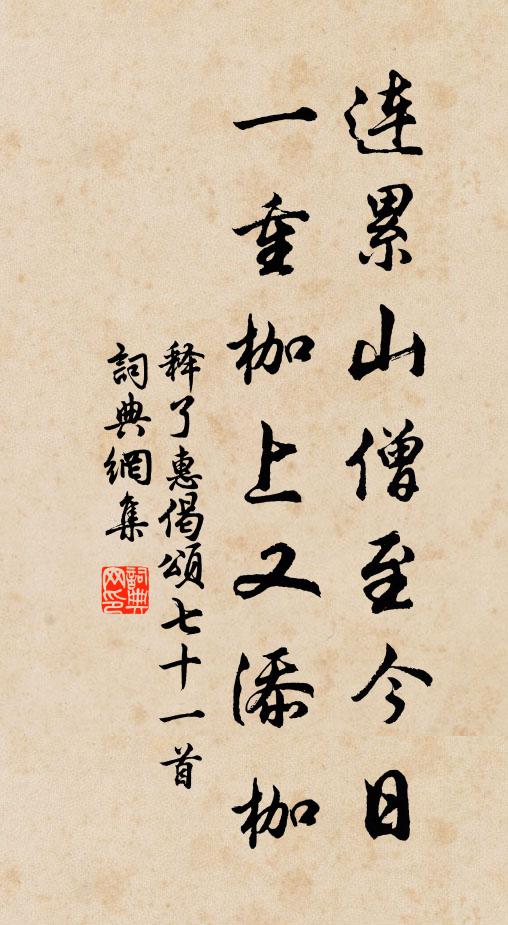 连累山僧至今日
一重枷上又添枷
释了惠偈頌七十一首
詞典網集
詞典网印